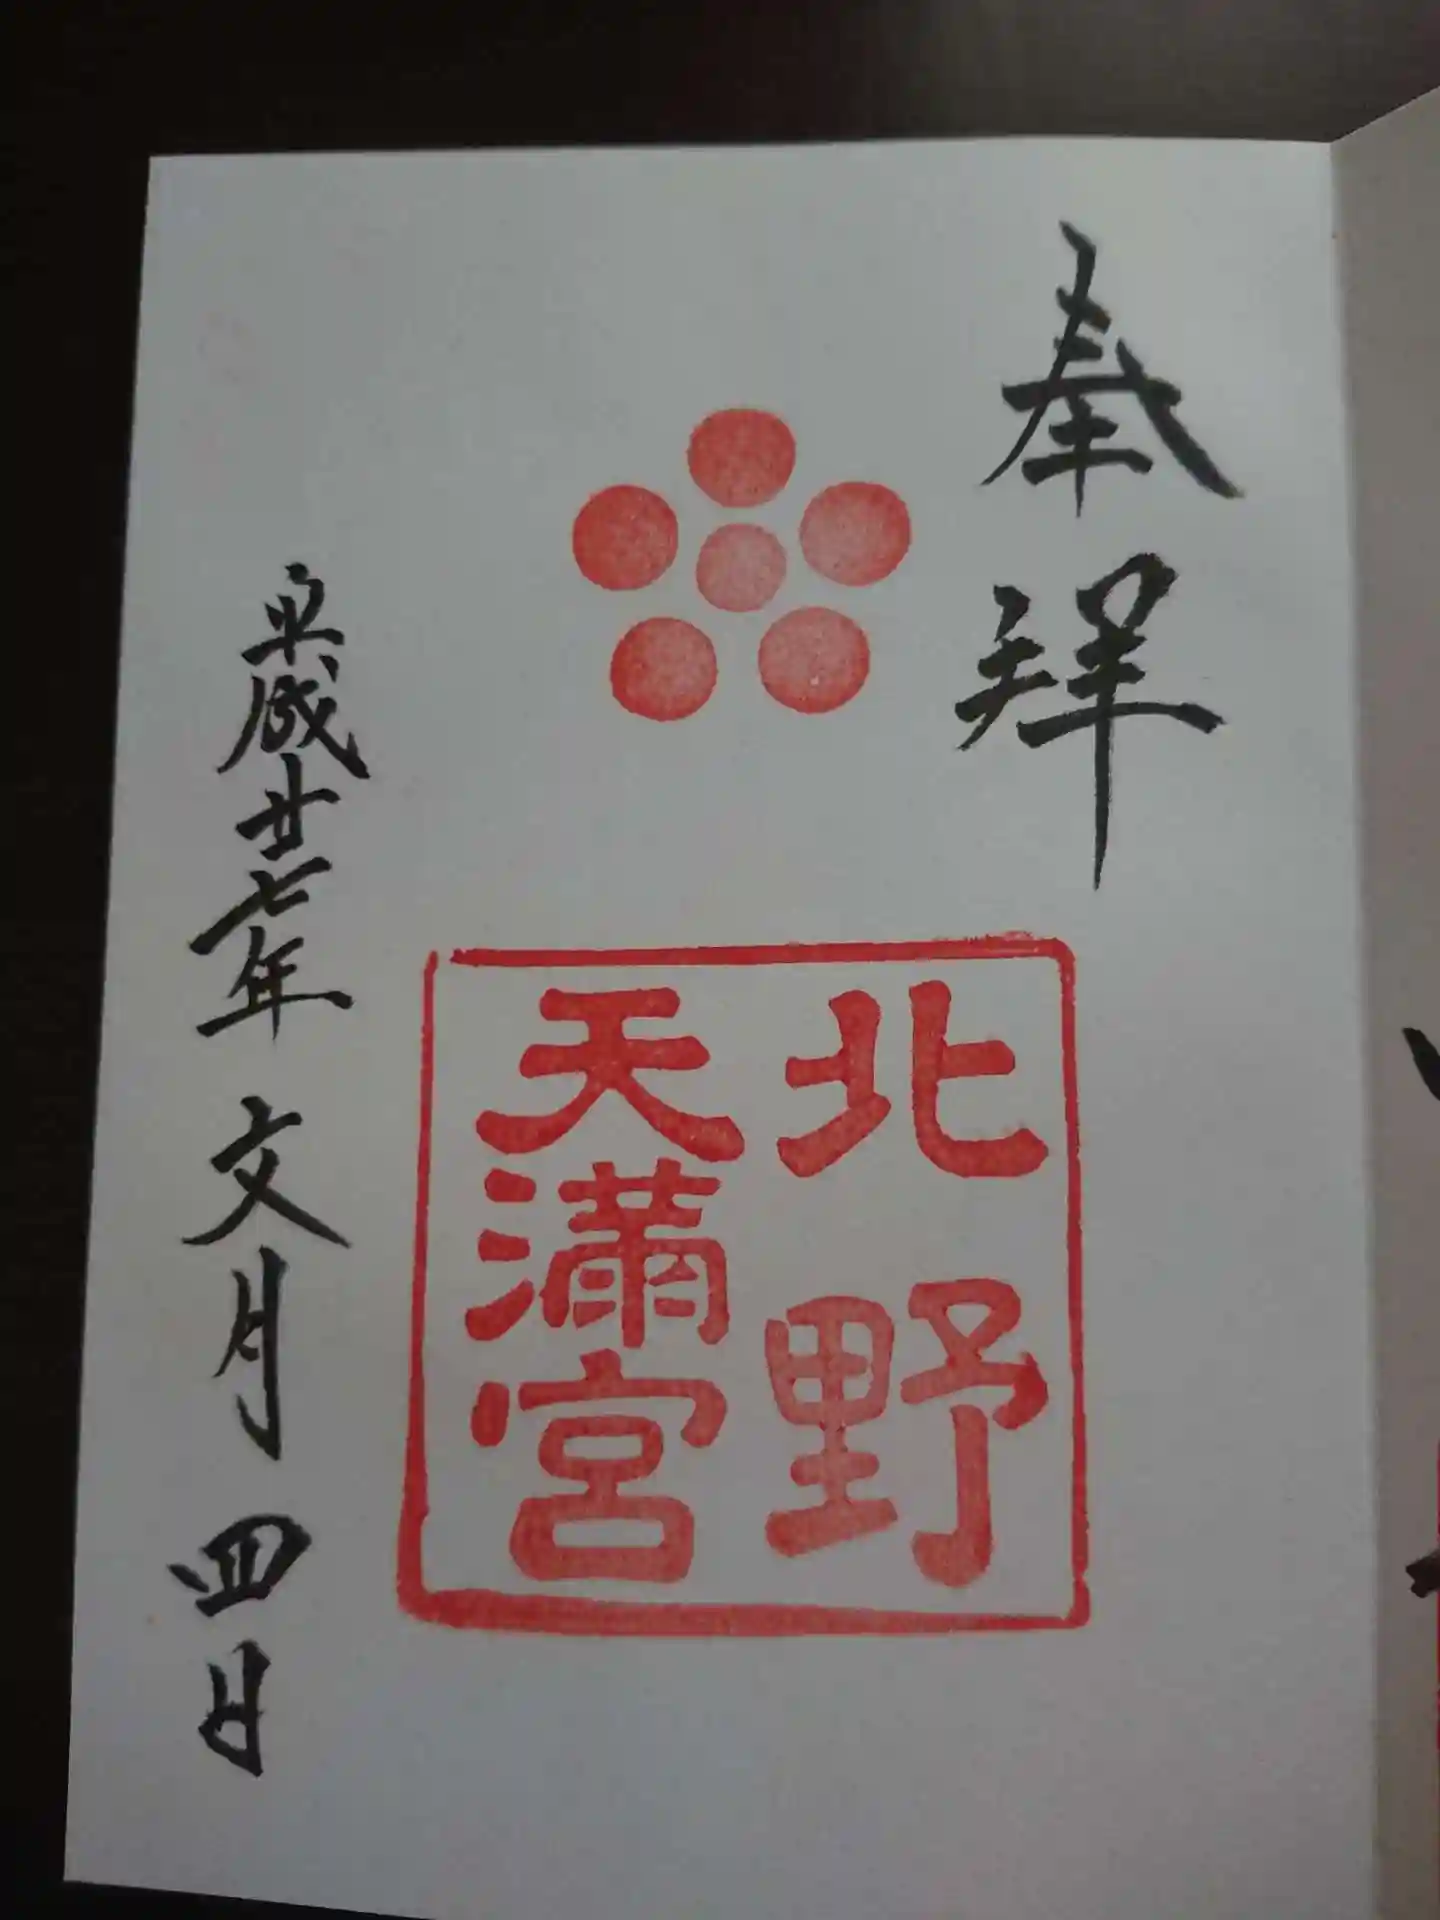 奉拜
北野
天満宮
平成廿七年 文月 四日